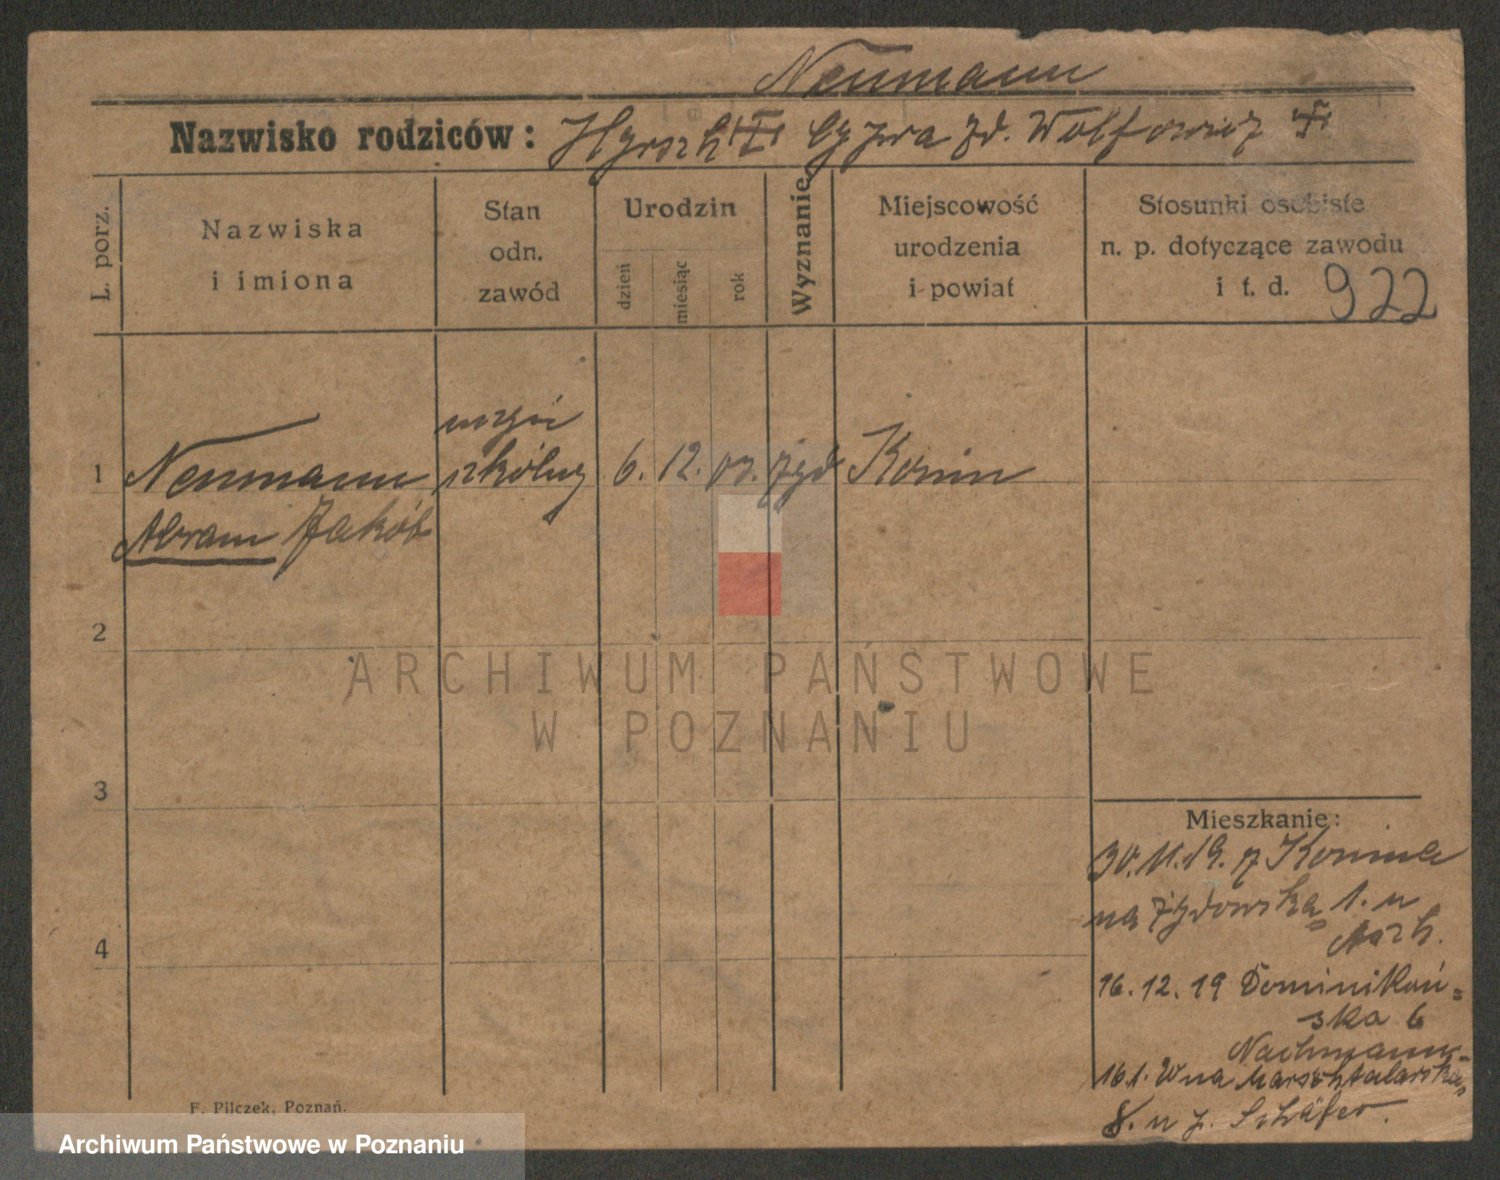 Neumann
Nazwisko rodziców: Hyrsch Cyzwa zd. Wolfowicz
L. porz.
Nazwiska
i imiona
Stan
odn.
zawód
Urodzin
dzień
miesiąc
rok
Wyznanie
Miejscowość
urodzenia
i powiat
Stosunki osobiste
n. p. dotyczące zawodu
i t. d.
922
1
Neumann
Abram Jakób
uczeń
szkólny
6. 12. 07. żyd
Konin
2
ARCHIWUM PAŃSTWOWE
W POZNANIU
3
4
Mieszkanie:
30.11.19. z Konina
na Żydowską 1. u
16.12.19 Dominikań=
ska 6
Nachmann
16.1. na Marsztalarską
8. u Schäfer.
F. Pilczek, Poznań.
Archiwum Państwowe w Poznaniu